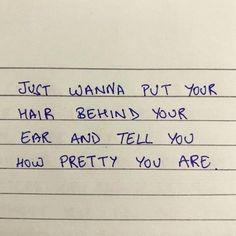 JUST WANNA PUT YOUR
HAIR BEHIND YOUR
EAR AND TELL YOU
HOW PRETTY YOU ARE.